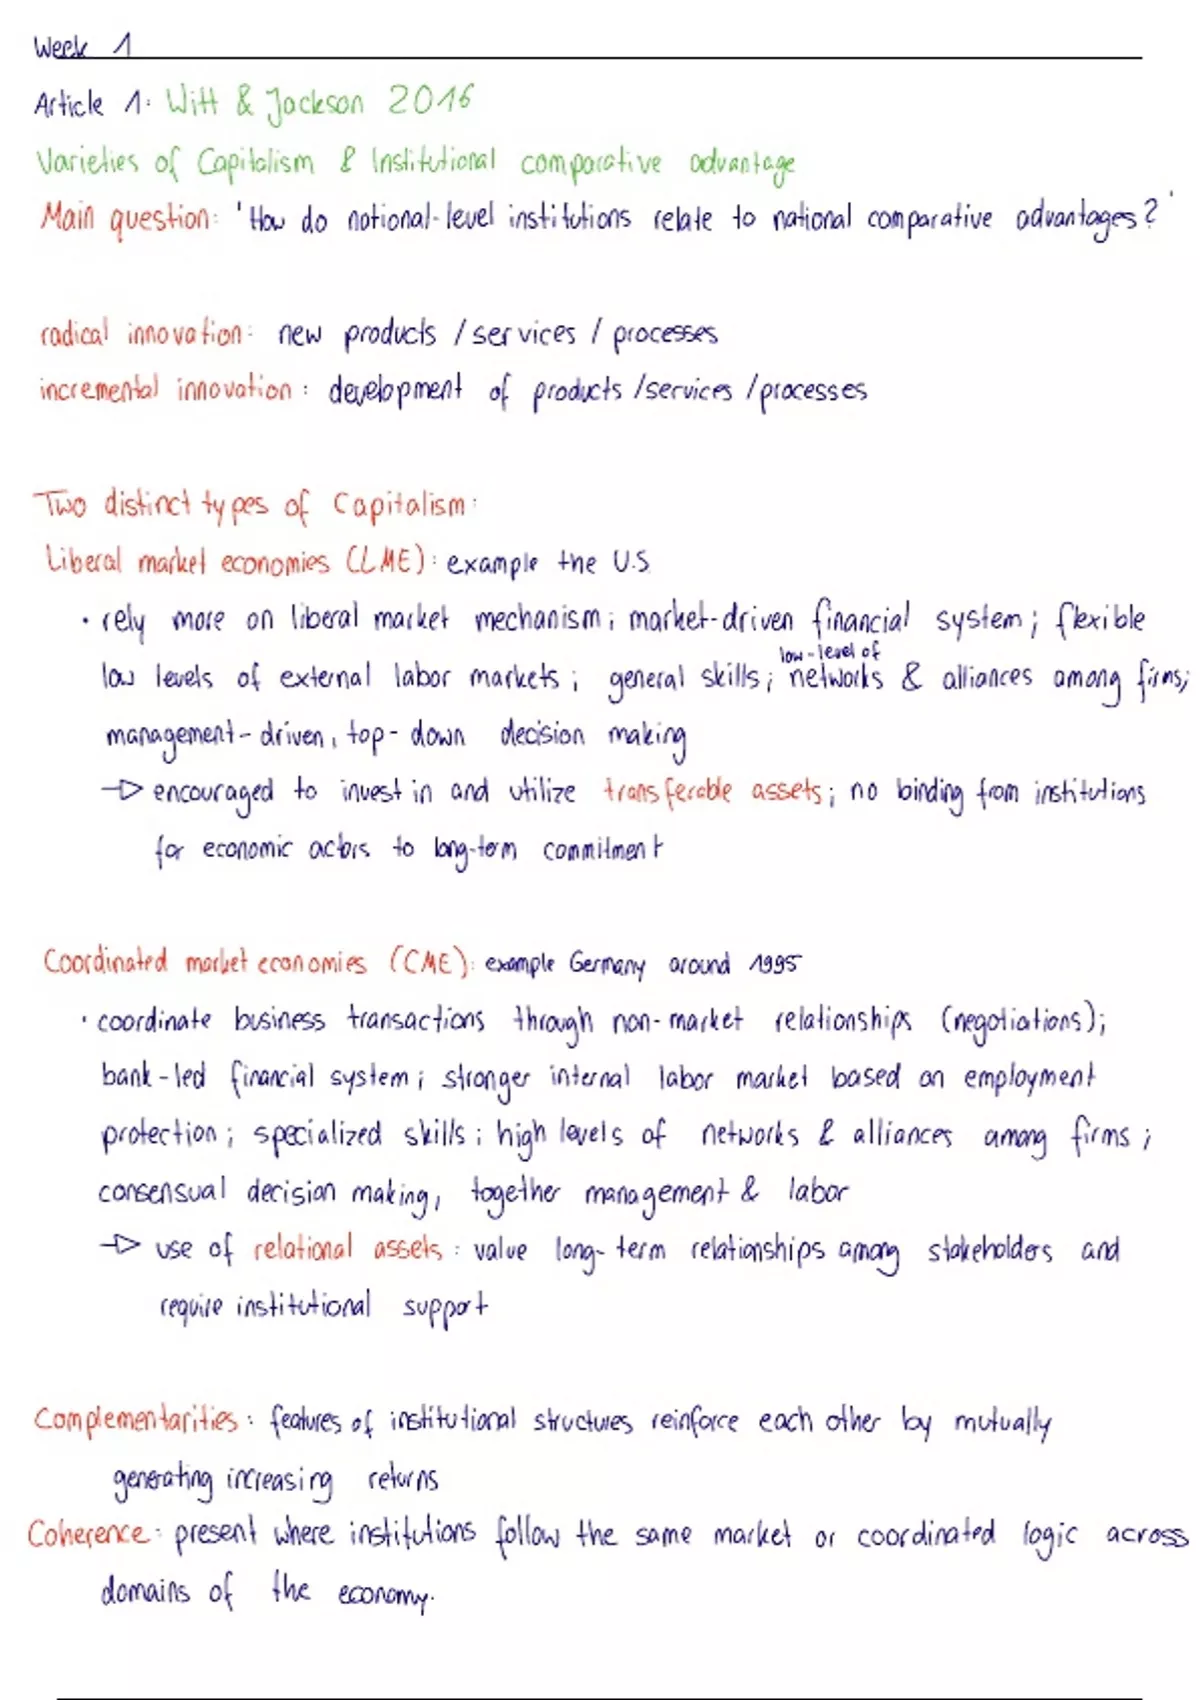 Week 1
Article 1: Witt & Jackson 2016
Varieties of Capitalism & Institutional comparative advantage
Main question: 'How do national-level institutions relate to national comparative advantages?'
radical innovation: new products / services / processes
incremental innovation: development of products / services / processes
Two distinct types of Capitalism:
Liberal market economies (LME): example the U.S.
• rely more on liberal market mechanism; market-driven financial system; flexible
low-level of
low levels of external labor markets; general skills; networks & alliances among firms;
management-driven, top-down decision making
→ encouraged to invest in and utilize transferable assets; no binding from institutions
for economic actors to long-term commitment
Coordinated market economies (CME): example Germany around 1995
• coordinate business transactions through non-market relationships (negotiations);
bank-led financial system; stronger internal labor market based on employment
protection; specialized skills; high levels of networks & alliances among firms;
consensual decision making, together management & labor
→ use of relational assets: value long-term relationships among stakeholders and
require institutional support
Complementarities: features of institutional structures reinforce each other by mutually
generating increasing returns
Coherence: present where institutions follow the same market or coordinated logic across
domains of the economy.